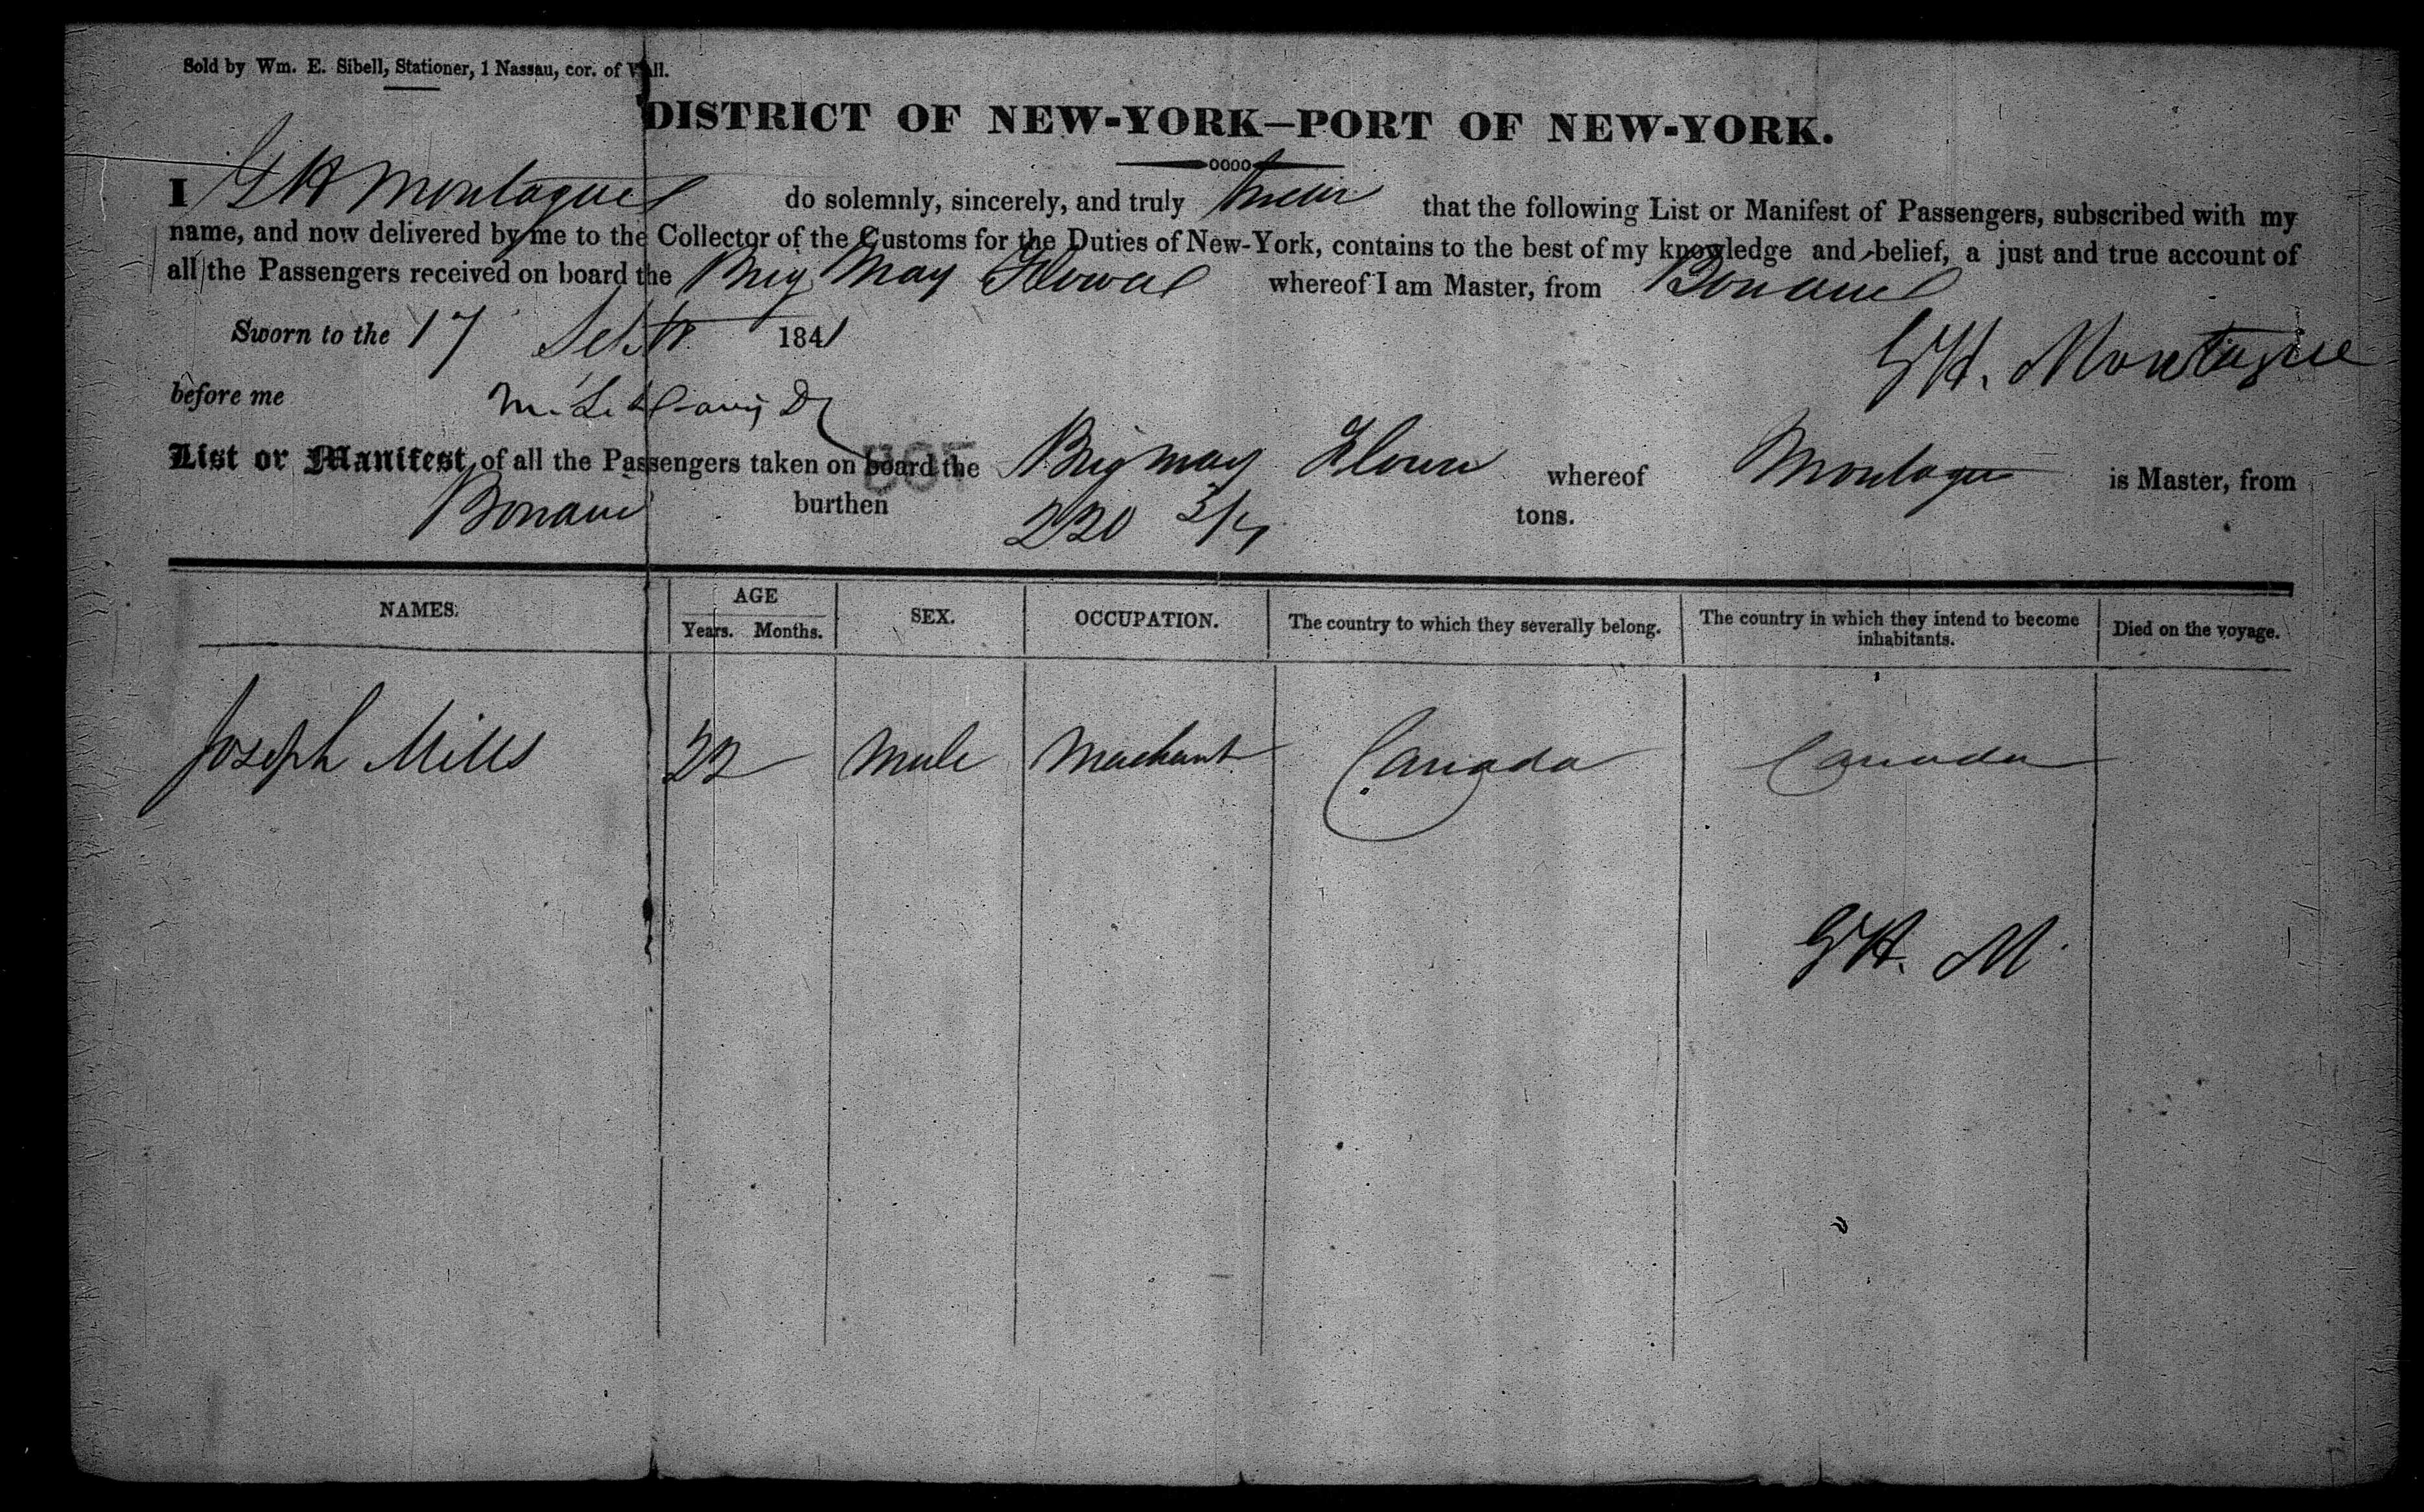 Sold by Wm. E. Sibell, Stationer, 1 Nassau, cor. of Wall.
DISTRICT OF NEW-YORK—PORT OF NEW-YORK.
I G H Montague do solemnly, sincerely, and truly swear that the following List or Manifest of Passengers, subscribed with my
name, and now delivered by me to the Collector of the Customs for the Duties of New-York, contains to the best of my knowledge and belief, a just and true account of
all the Passengers received on board the Brig May Flower whereof I am Master, from Bonaire
Sworn to the 17 Septr 1841
G H. Montague
before me
List or Manifest, of all the Passengers taken on board the Brig May Flower whereof Montague is Master, from
Bonaire burthen 220 tons.
NAMES. AGE Years. Months. SEX. OCCUPATION. The country to which they severally belong. The country in which they intend to become inhabitants. Died on the voyage.
Joseph Mills 22 Male Merchant Canada Canada
G H. M.